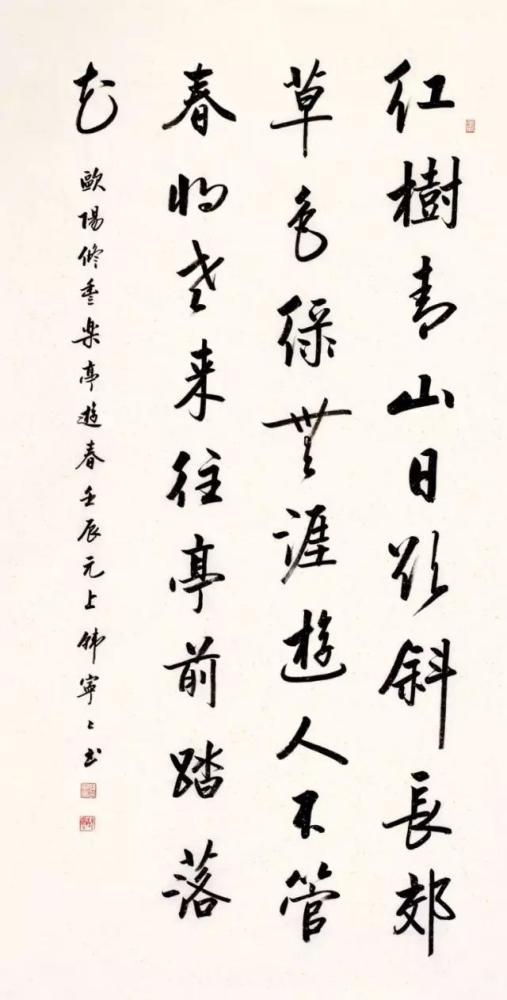 红樹青山日欲斜長郊
草色緑無涯遊人不管
春将老来往亭前踏落
花
歐陽修豊樂亭遊春壬辰元上韩寧寧書